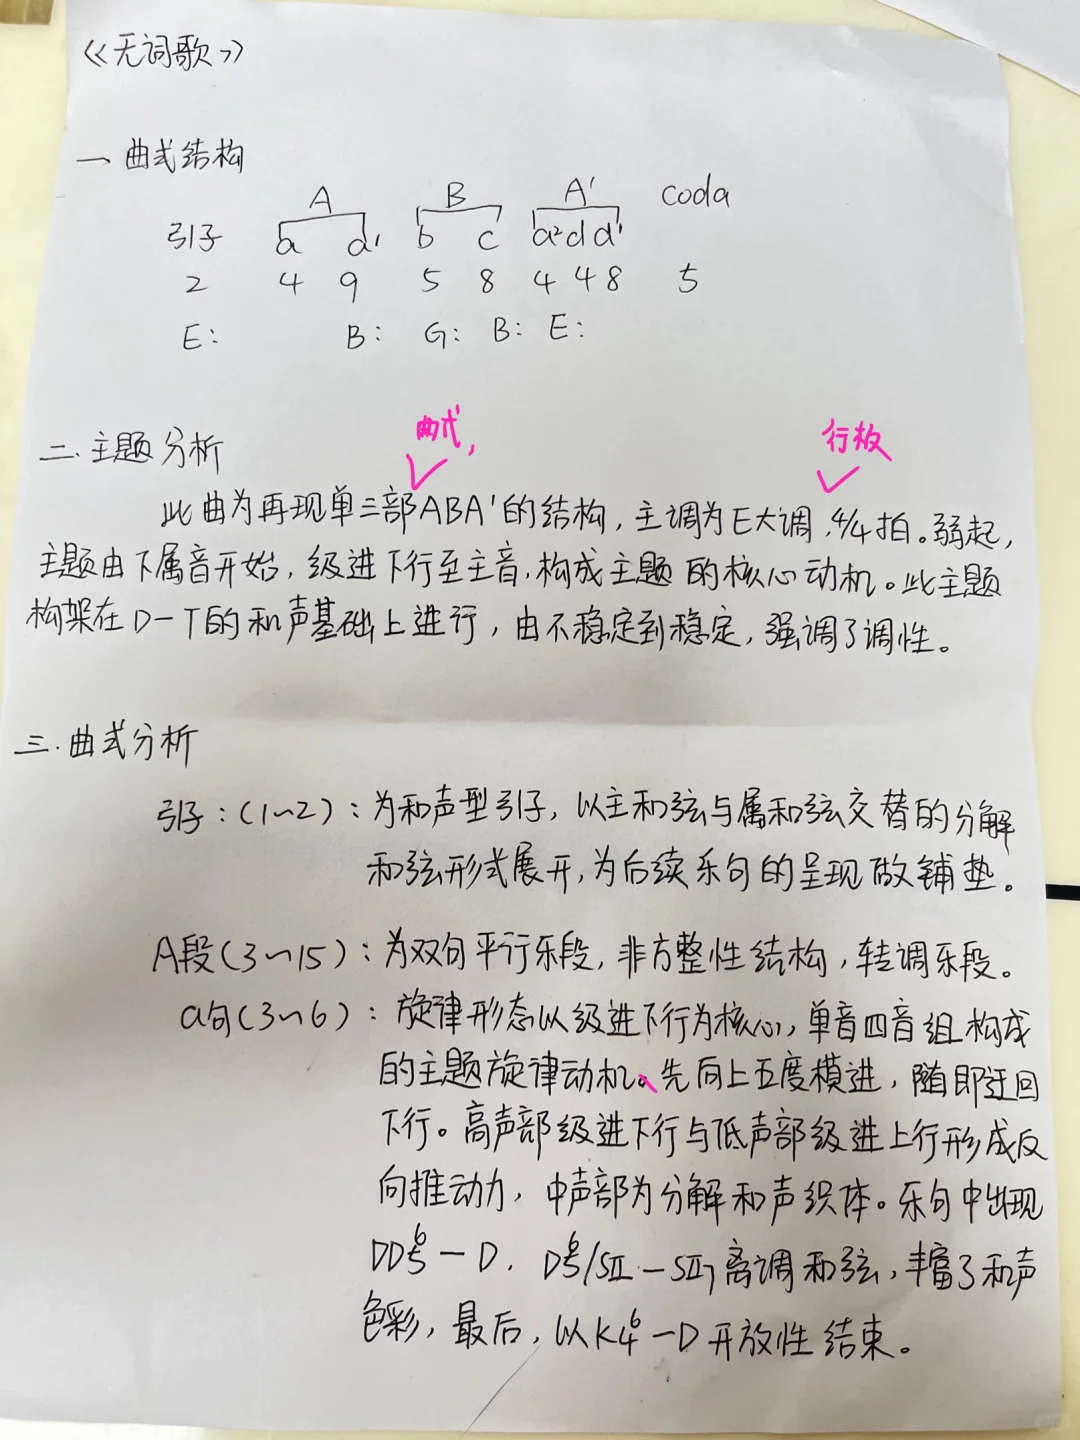 《无词歌》
一、曲式结构
A B A' coda
引子 a a' b c a² d a'
2 4 9 5 8 4 4 8 5
E: B: G: B: E:
曲式,
行板
二、主题分析
此曲为再现单三部ABA'的结构,主调为E大调,4/4拍。弱起,
主题由下属音开始,级进下行至主音,构成主题的核心动机。此主题
构架在D—T的和声基础上进行,由不稳定到稳定,强调了调性。
三.曲式分析
引子:(1~2):为和声型引子,以主和弦与属和弦交替的分解
和弦形式展开,为后续乐句的呈现做铺垫。
A段(3~15):为双句平行乐段,非方整性结构,转调乐段。
a句(3~6):旋律形态以级进下行为核心,单音四音组构成
的主题旋律动机。先向上五度模进,随即迂回
下行。高声部级进下行与低声部级进上行形成反
向推动力,中声部为分解和声织体。乐句中出现
DD⁶₅—D.D⁶₅/SII—SII₇离调和弦,丰富了和声
色彩,最后,以K⁶₄—D开放性结束。